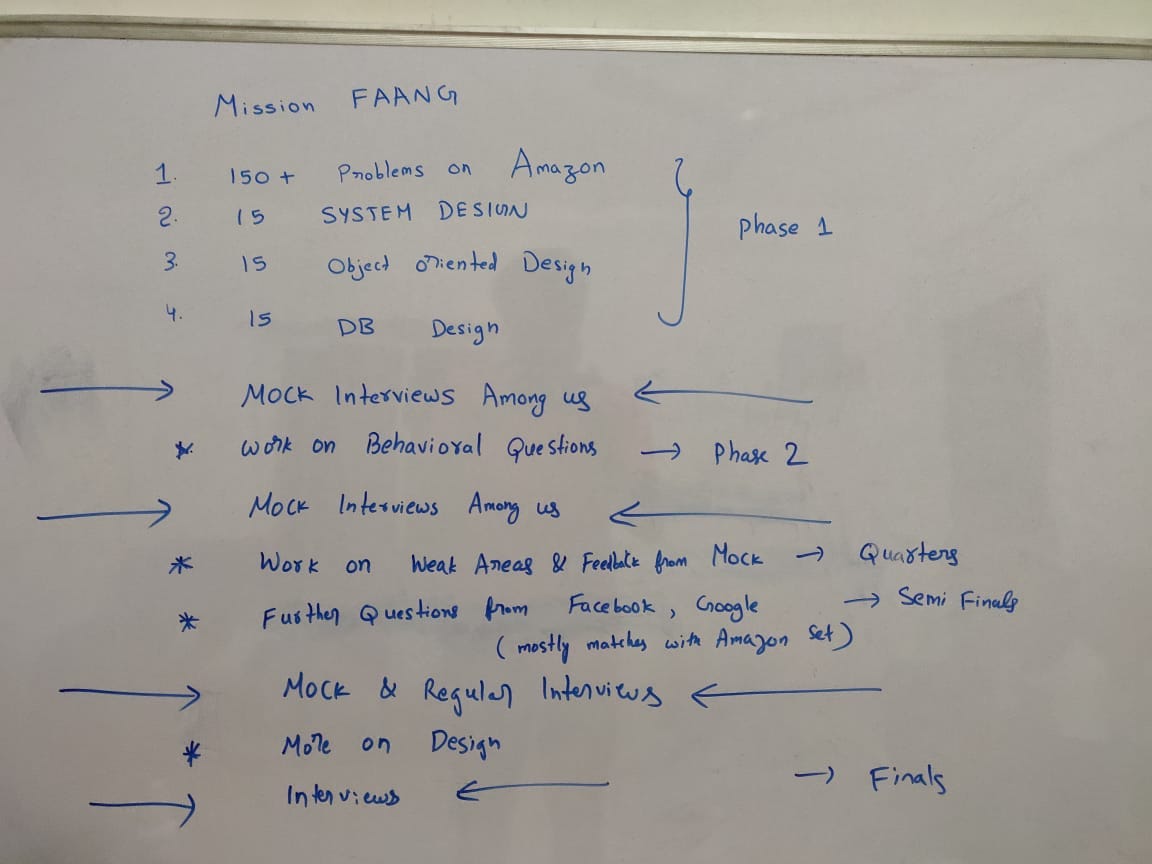 Mission FAANG
1. 150+ Problems on Amazon
2. 15 SYSTEM DESIGN
3. 15 Object oriented Design
4. 15 DB Design
Phase 1
→ Mock Interviews Among us ←
* Work on Behavioral Questions → Phase 2
→ Mock Interviews Among us ←
* Work on Weak Areas & Feedback from Mock → Quarters
* Further Questions from Facebook, Google → Semi Finals
(mostly matches with Amazon Set)
→ Mock & Regular Interviews ←
* More on Design
→ Interviews ← → Finals